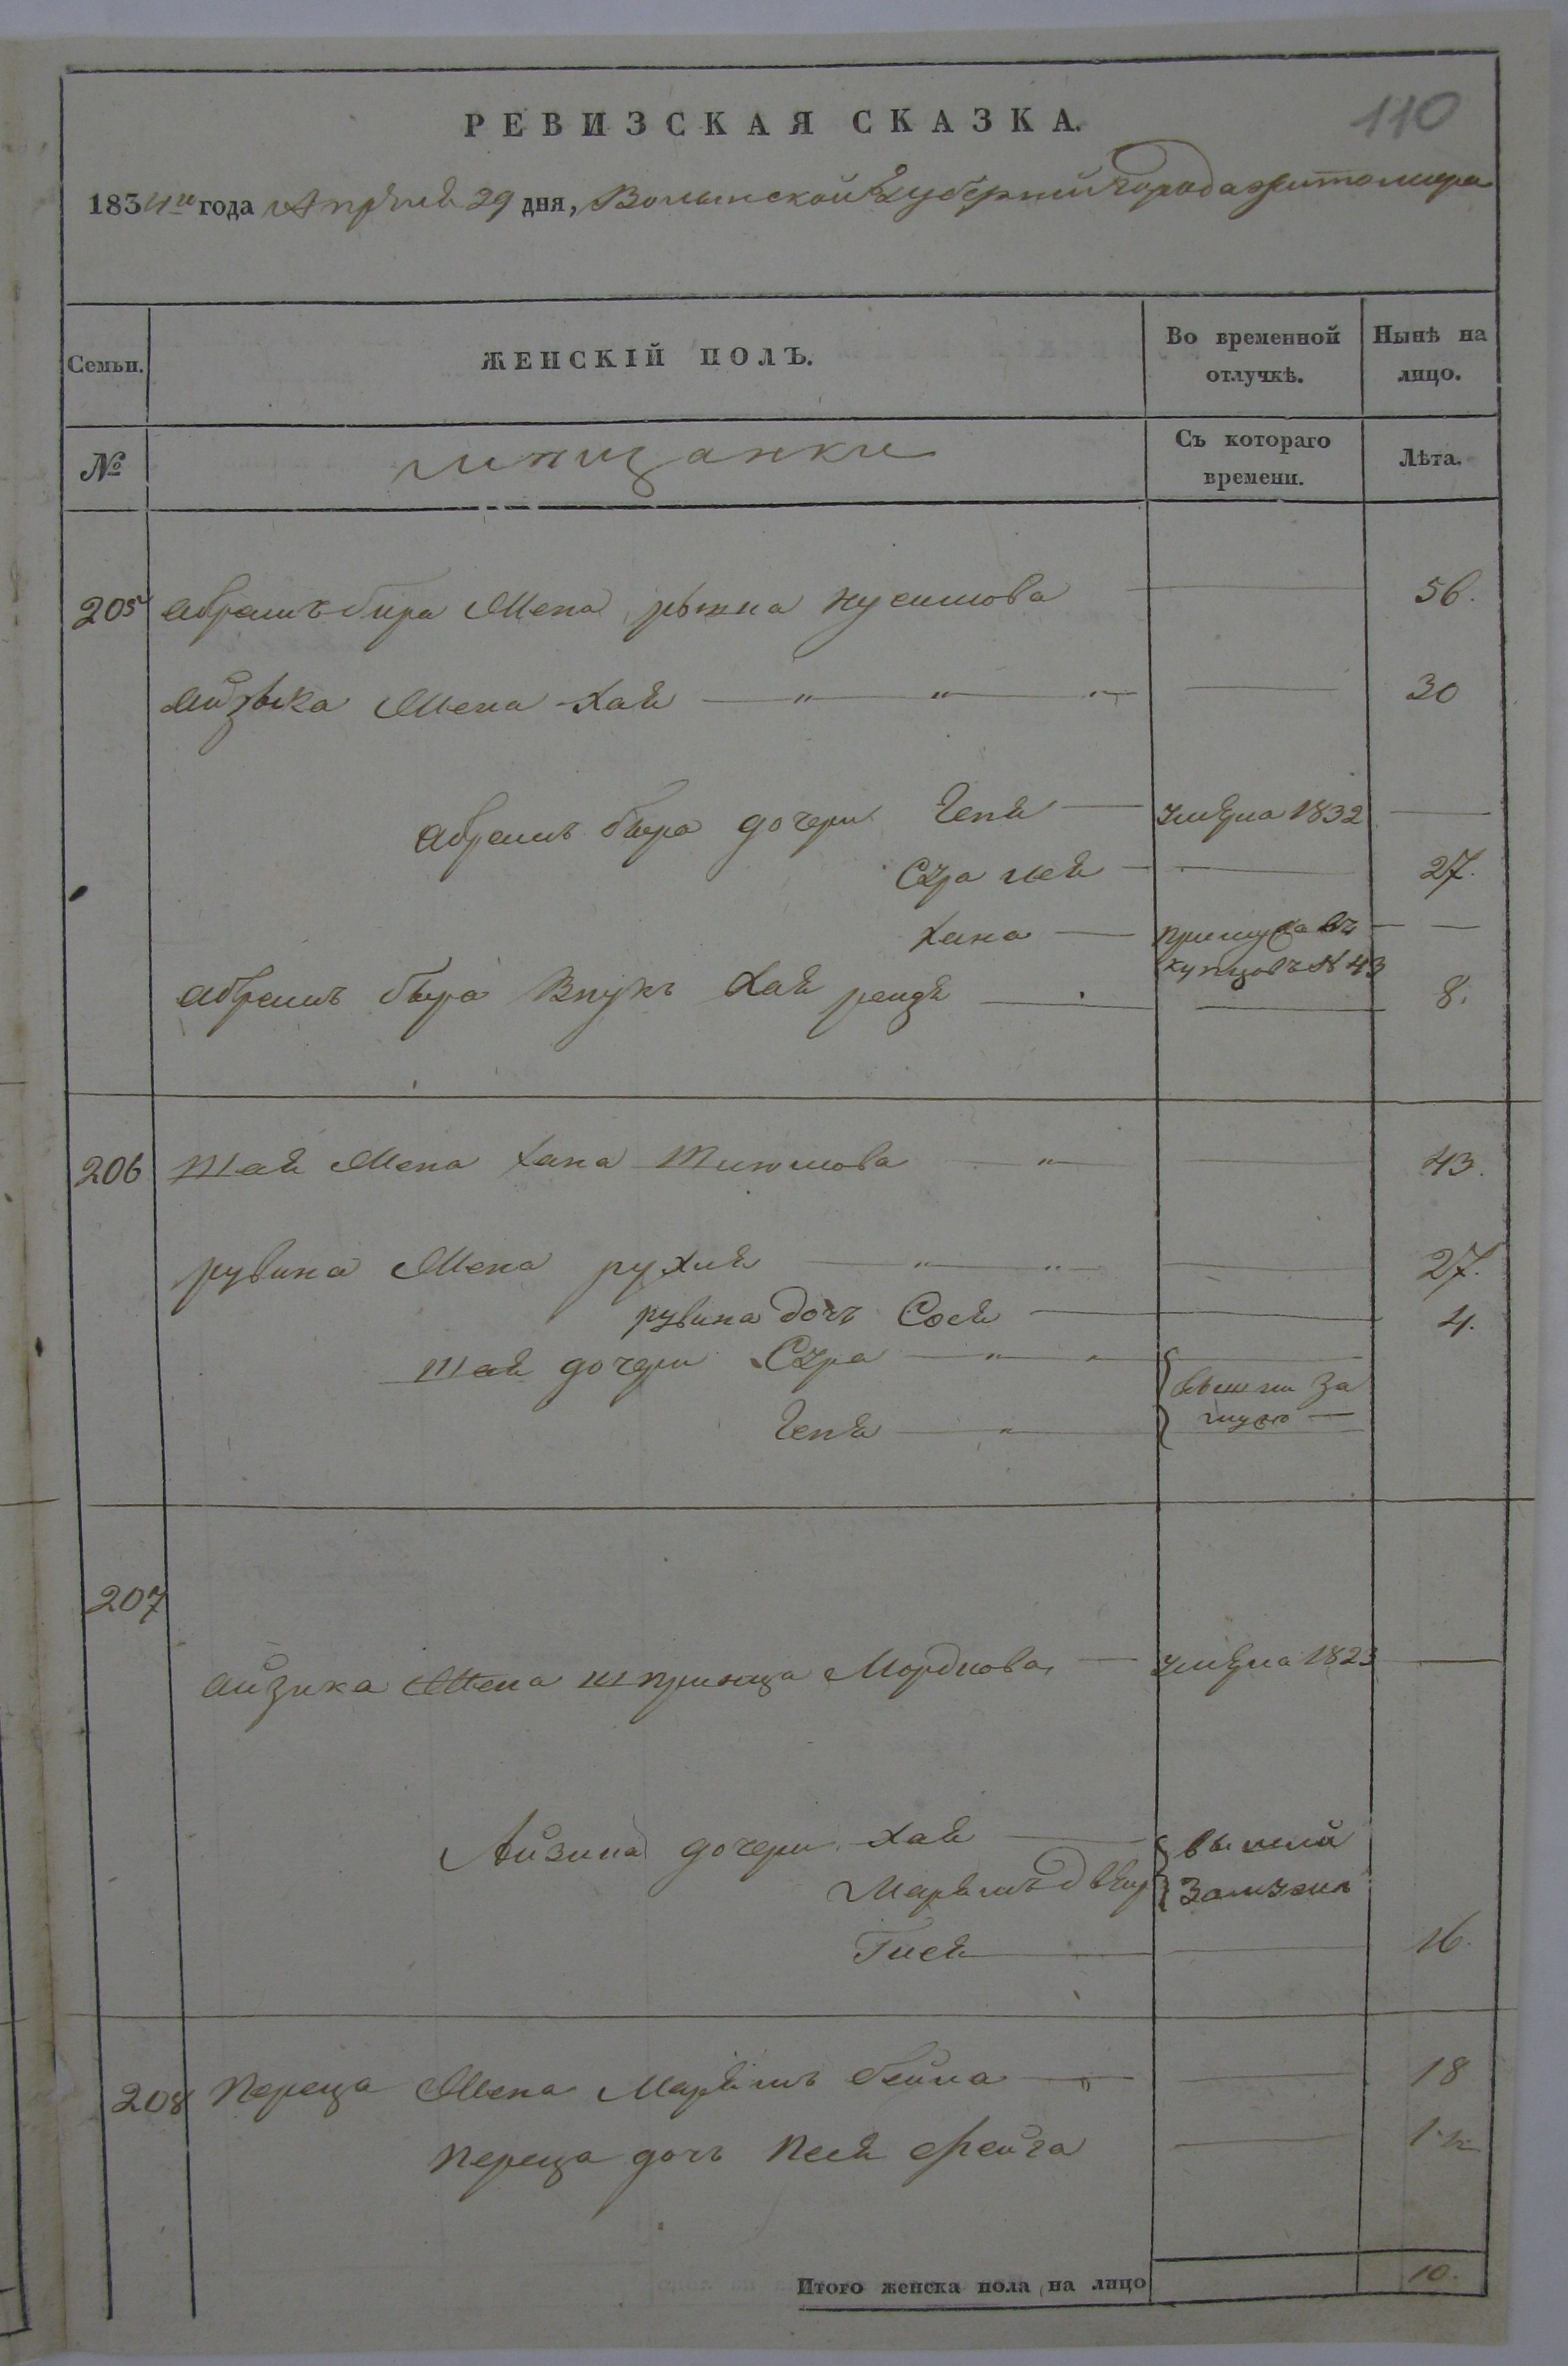 110
РЕВИЗСКАЯ СКАЗКА.
1834го года Апреля 29 дня, Волынской Губернии города Житомира
Семьи. ЖЕНСКІЙ ПОЛЪ. Во временной отлучкѣ. Нынѣ на лицо.
№ мещанки Съ котораго времени. Лѣта.
205 Абрамъ бера Жена рыкла Нусимова — 56.
Айзыка Жена Хая — " — " — " — 30
Абрамъ бера дочери Геня — умерла 1832 —
Сура лея — 27.
Хана — при мужа въ — —
купцовъ № 43
Абрамъ бера Внукъ Хая рейзя — 8.
206 Шаи Жена Хана — " — 43.
рувина Жена рухля — " — " — 27.
рувина дочь Сося — 4.
Шаи дочери Сура — " — " { вышли За
Геня — " } мужъ —
207
Айзика Жена шпринца Мордкова — умерла 1823 —
Айзика дочери Хая — { вышли
Марьямъ двейр } Замужъ
Гися — 16.
208 Переца Жена Марьямъ бейла — " — 18
Переца дочь Песя фейга — 1 ½
Итого женска пола на лицо 10.